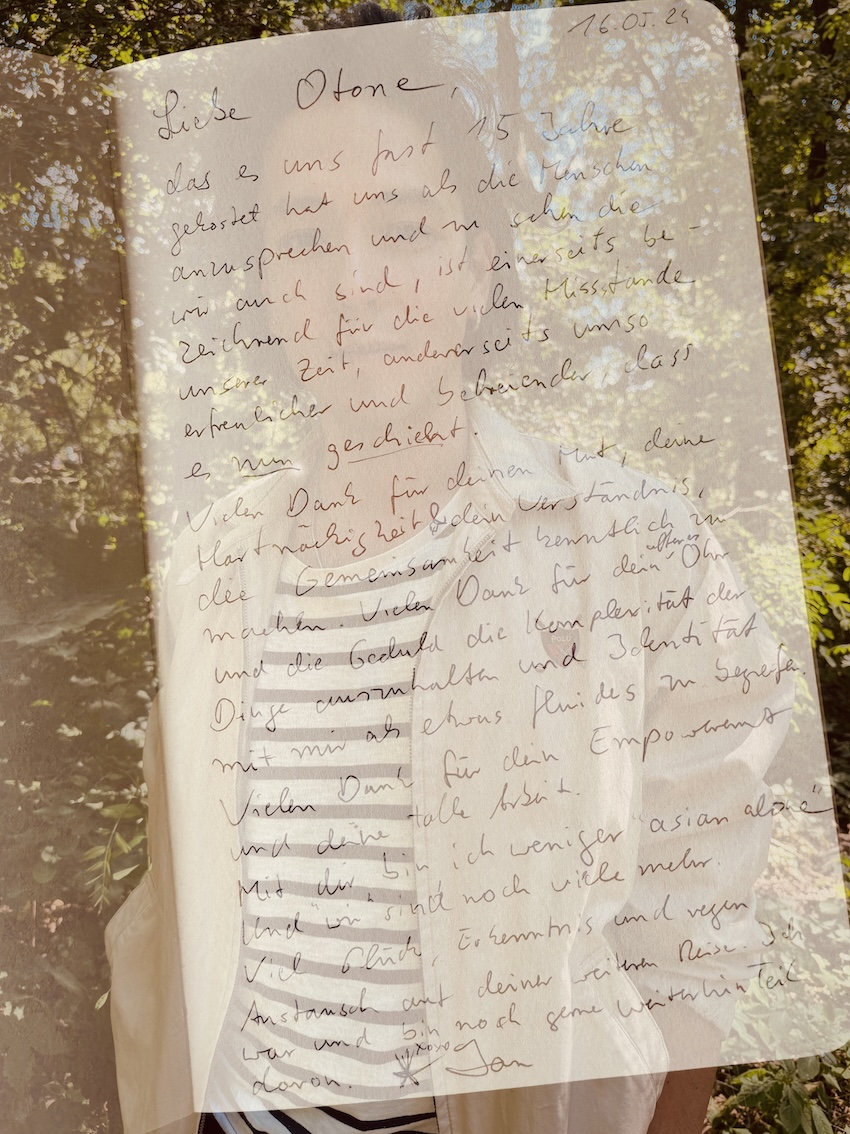 16.05.24
Liebe Otone,
das es uns fast 15 Jahre
gekostet hat uns als die Menschen
anzusprechen und zu sehen die
wir auch sind, ist einerseits be-
zeichnend für die vielen Missstände
unserer Zeit, andererseits umso
erfreulicher und befreiender, dass
es nun geschieht.
Vielen Dank für deinen Mut, deine
Hartnäckigkeit & dein Verständnis,
die Gemeinsamkeit kenntlich zu
machen. Vielen Dank für dein offenes Ohr
und die Geduld die Komplexität der
Dinge auszuhalten und Identität
mit mir als etwas fluides zu begreifen.
Vielen Dank für dein Empowerment
und deine tolle Arbeit.
Mit dir bin ich weniger "asian alone"
Und "wir" sind noch viele mehr.
Viel Glück, Erkenntnis und regen
Austausch auf deiner weiteren Reise. Ich
war und bin noch gerne weiterhin Teil
davon. xoxo Jan